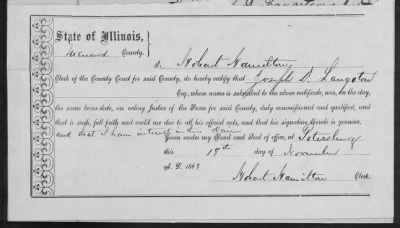 State of Illinois,
Menard County.
I, Hobart Hamilton
Clerk of the County Court for said County, do hereby certify that Joseph D. Langston
Esq., whose name is subscribed to the above certificate, was, on the day,
the same bears date, an acting Justice of the Peace for said County, duly commissioned and qualified, and
that as such, full faith and credit are due to all his official acts, and that his signature thereto is genuine,
and that I have no interest in this claim
Given under my Hand and Seal of office, at Petersburg
this 18th day of November
A. D. 186
Hobart Hamilton Clerk.